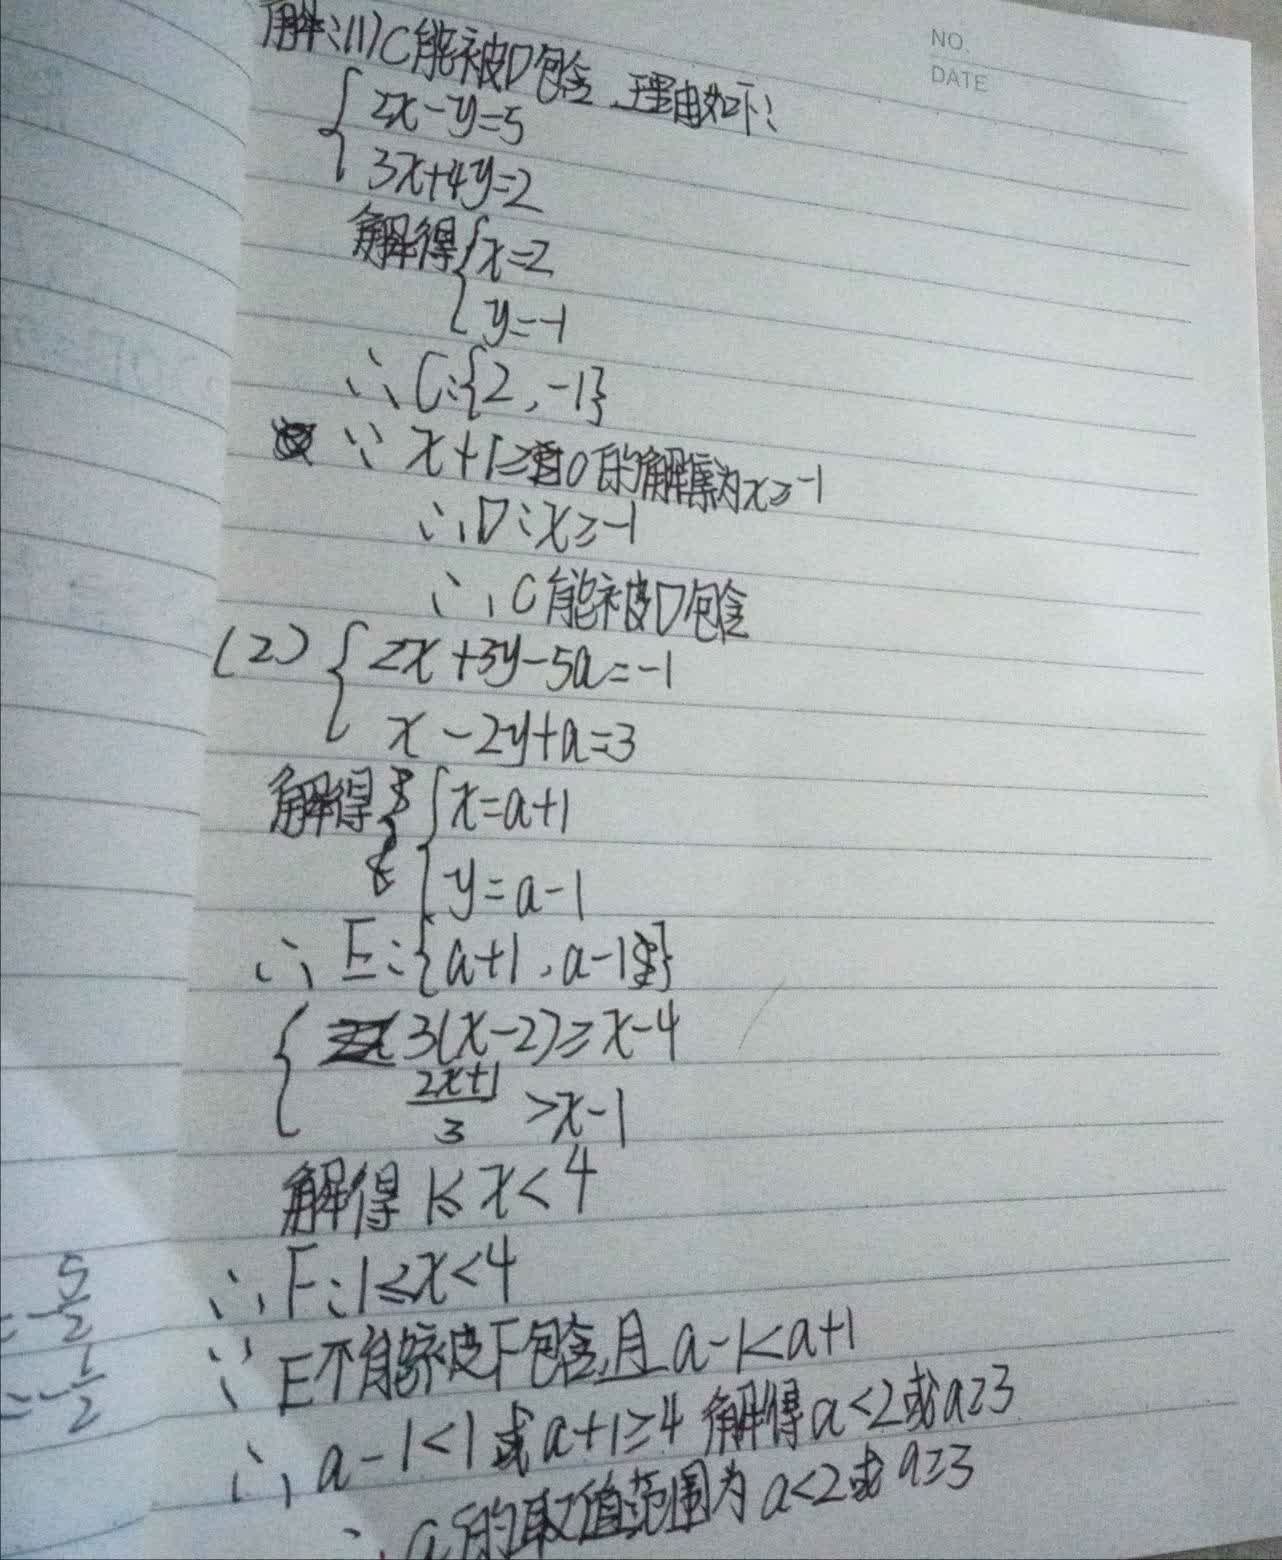 NO.
DATE
解:(1)C能被D包含,理由如下:
2x-y=5
3x+4y=2
解得{x=2
y=-1
∴C:{2,-1}
∵x+1≥0的解集为x≥-1
∴D:x≥-1
∴C能被D包含
(2){2x+3y-5a=-1
x-2y+a=3
解得{x=a+1
y=a-1
∴E:{a+1,a-1}
{3(x-2)≥x-4
2x+1/3>x-1
解得1≤x<4
∴F:1≤x<4
∵E不能被F包含,且a-1<a+1
∴a-1<1或a+1≥4 解得a<2或a≥3
∴a的取值范围为a<2或a≥3
=-5/2
=-1/2